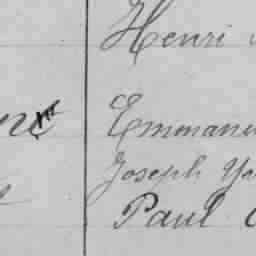 Henri
Emmanu
Joseph Ya
Paul